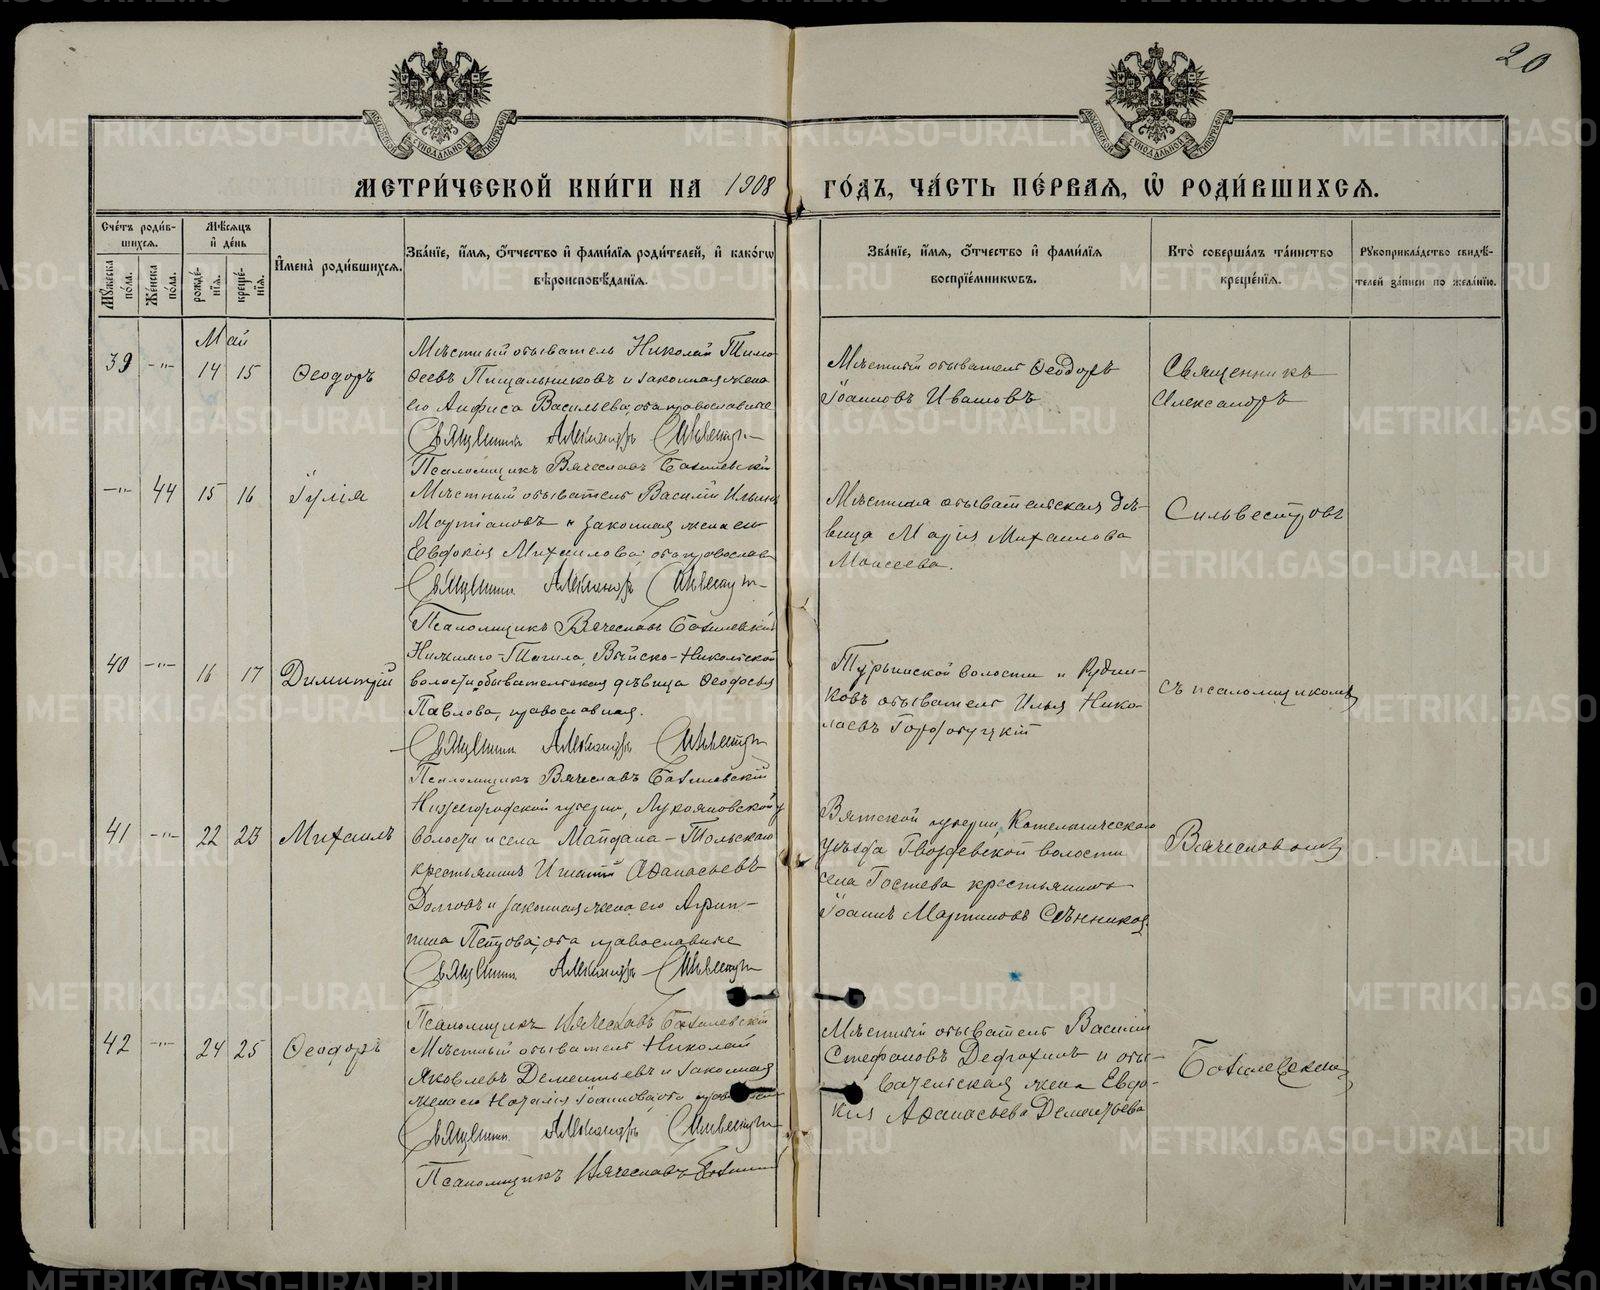 20
МЕТРИ́ЧЕСКОЙ КНИ́ГИ НА 1908 ГО́ДЪ, ЧА́СТЬ ПЕ́РВАЯ, Ѡ РОДИ́ВШИХСЯ.
Сче́тъ роди́в-
шихся.
Мѣ́сяцъ
и҆ де́нь
Му́жеска
по́ла.
Же́нска
по́ла.
рожде́-
нїѧ.
креще́-
нїѧ.
И҆мена̀ роди́вшихся.
Зва́нїе, и҆́мѧ, ѻ҆́тчество и҆ фами́лїѧ роди́телей, и҆ како́гѡ
вѣроисповѣ́данїѧ.
Зва́нїе, и҆́мѧ, ѻ҆́тчество и҆ фами́лїѧ
воспрїе́мникѡвъ.
Кто̀ соверша́лъ та́инство
креще́нїѧ.
Рꙋкоприкла́дство свидѣ́-
телей за́писи по жела́нїю.
Май
39 -"- 14 15 Ѳеодоръ
Мѣстный обыватель Николай Тимо-
ѳеевъ Пищальниковъ и законная жена
его Анфиса Васильева, оба православные
Священникъ Александръ Сильвестровъ
Псаломщикъ Вячеславъ Богилевскій
Мѣстный обыватель Ѳеодоръ
Іоанновъ Ивановъ
Священникъ
Александръ
-"- 44 15 16 Іулія
Мѣстный обыватель Василій Ильинъ
Мартіановъ и законная жена его
Евдокія Михаилова, оба православ
Священникъ Александръ Сильвестровъ
Псаломщикъ Вячеславъ
Мѣстная обывательская дѣ-
вица Марія Михаилова
Моисеева.
Сильвестровъ
40 -"- 16 17 Димитрій
Нижнего-Тагила, Выйско-Никольской
волости, обывательская дѣвица Ѳеодосія
Павлова, православная.
Священникъ Александръ Сильвестровъ
Псаломщикъ Вячеславъ
Турьинской волости и Рудни-
ковъ обыватель Илья Нико-
лаевъ
съ псаломщикомъ
41 -"- 22 23 Михаилъ
Нижегородской губерніи, Лукояновской
волости и села Майдана-
крестьянинъ Игнатій Аѳанасьевъ
Долговъ и законная жена его Агрип-
пина Петрова, оба православные
Священникъ Александръ Сильвестровъ
Псаломщикъ Вячеславъ
Вятской губерніи Котельническаго
уѣзда Гвоздевской волости
села Гостева крестьянинъ
Іоаннъ Мартиновъ Сѣнниковъ
Вячеславомъ
42 -"- 24 25 Ѳеодоръ
Мѣстный обыватель Николай
Яковлевъ Дементьевъ и законная
жена его Наталія Іоаннова, оба
Священникъ Александръ Сильвестровъ
Псаломщикъ Вячеславъ
Мѣстный обыватель Василій
Стефановъ и обы-
вательская жена Евдо-
кія Аѳанасьева Дементьева
METRIKI.GASO-URAL.RU